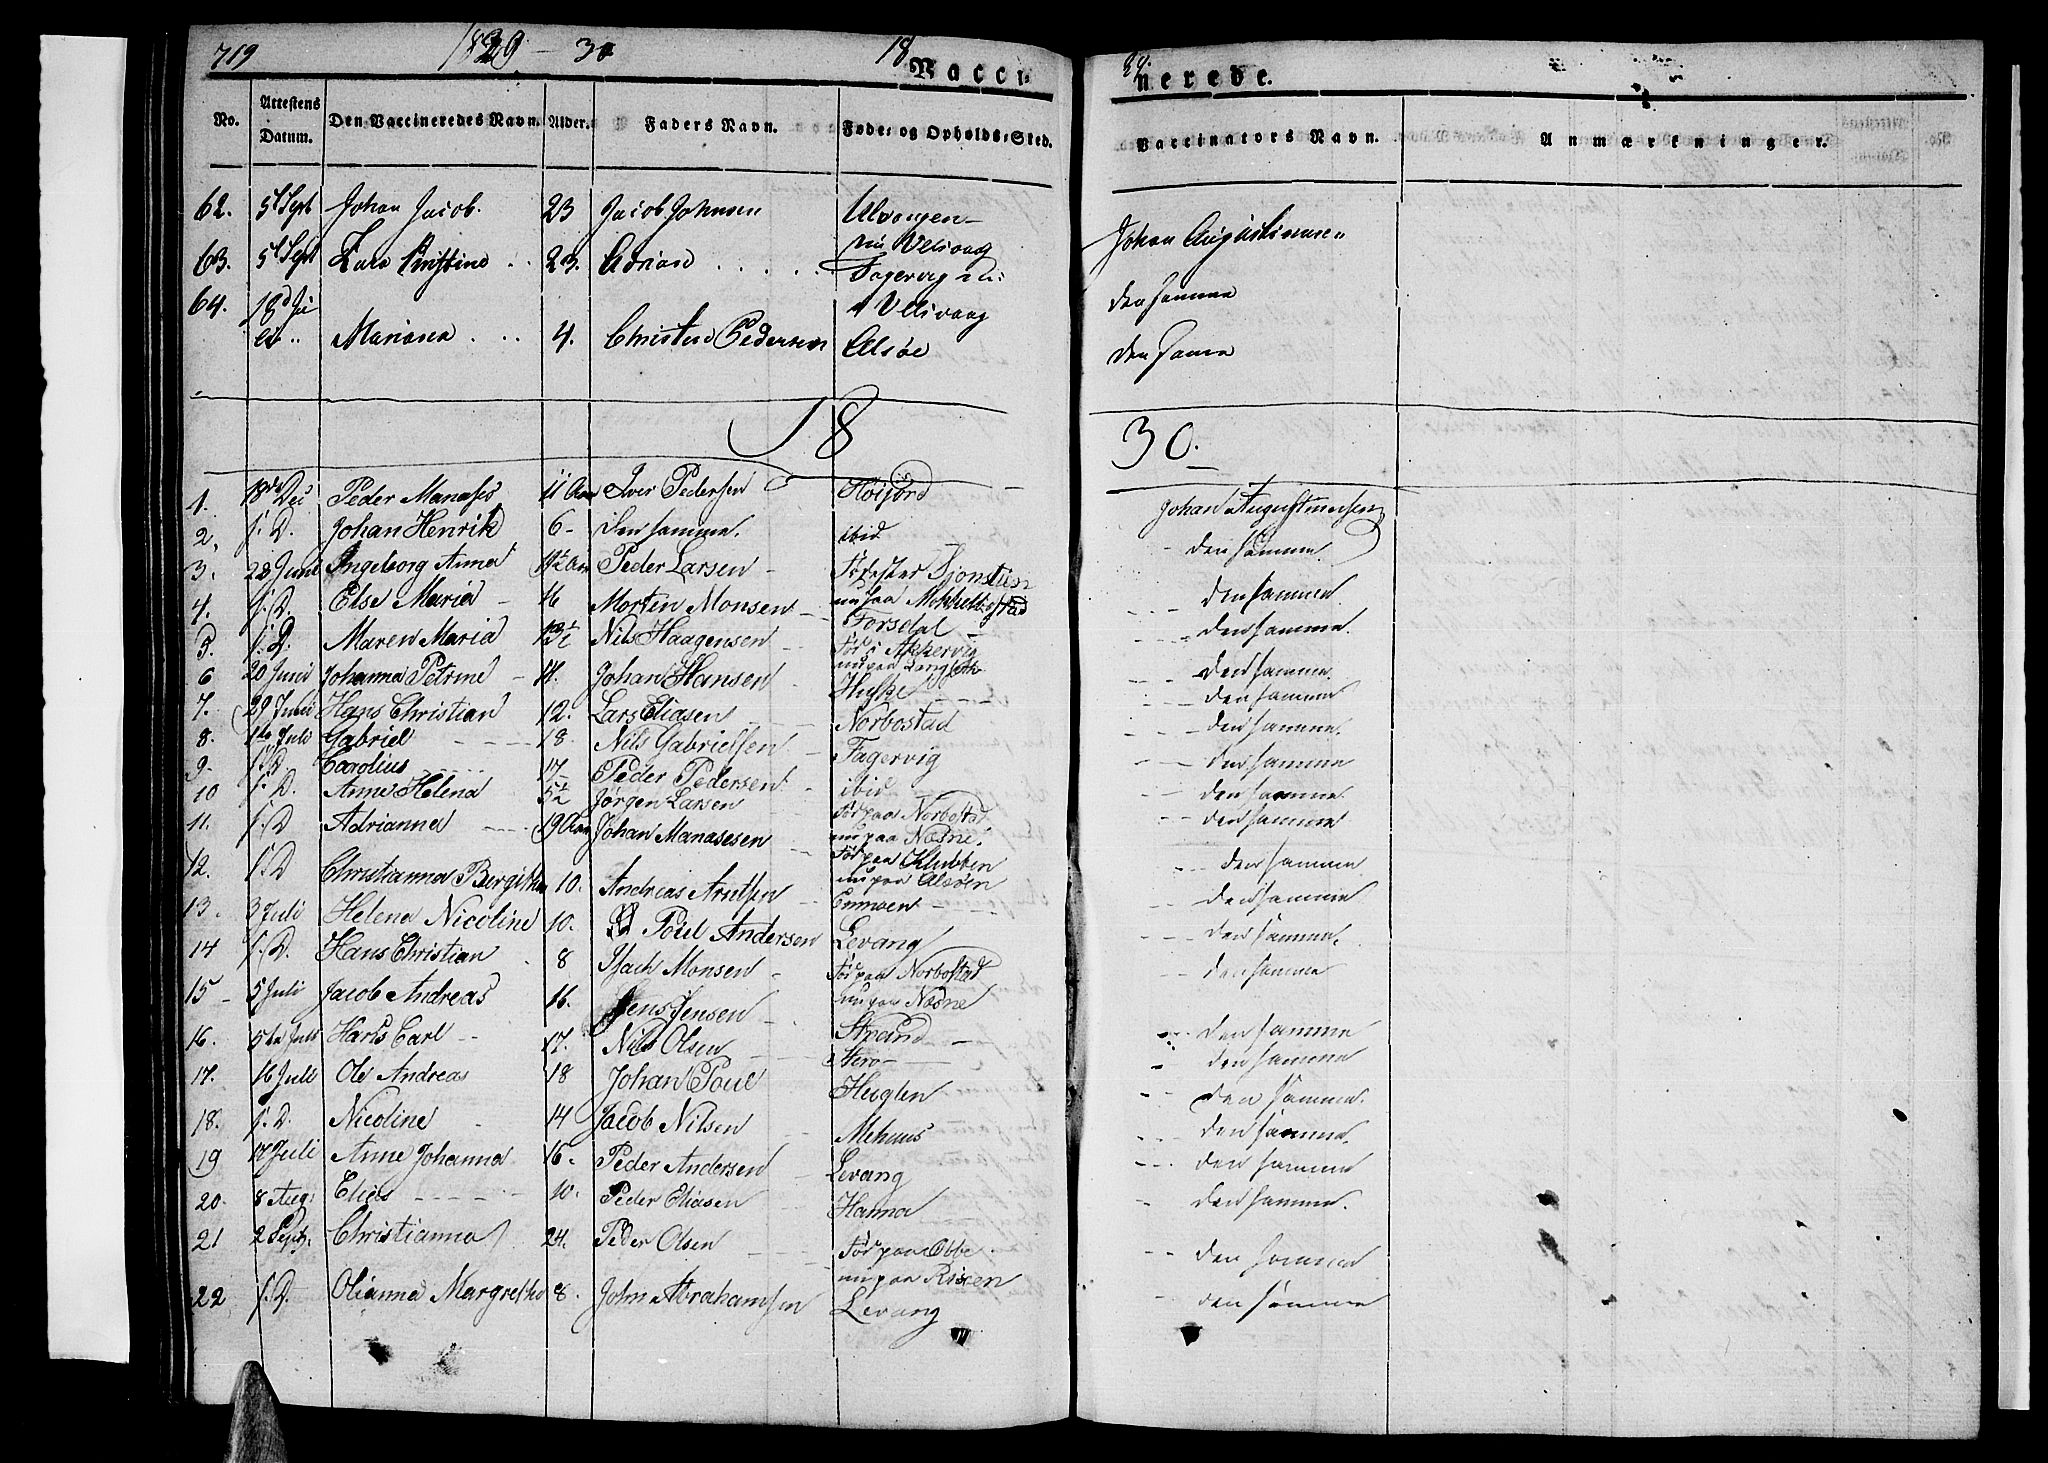 719 1829 - 30 18
Vacci-
nerede.
No. Attestens Datum. Den Vaccineredes Navn. Alder. Faders Navn. Føde- og Opholds-Sted. Vaccinators Navn. Anmærkninger.
62. 5t Sept Johan Jacob. 23 Jacob Johnsen Ulvangen - nu Velsvaag Johan Augustinusen
63. 5t Sept 23. Fagervig Velsvaag den samme
64. 18d Ju li Mariana 4. Christen Pedersen Alsøe den samme
18 30.
1. 18de Dec Peder Manases 11 Aar Iver Pedersen Høifjord Johan Augustinusen
2. s. D. Johan Henrik 6 - den samme. ibid den samme
3. 22 Juni Ingeborg Anna Peder Larsen nu paa Mekkelbostad den samme
4. s. D. Else Maria 16 Morten Monsen Forsdal den samme.
5. s. D. Maren Maria Nils Haagensen Fød i Akkervig den samme
6 20 Juni Johanna Petrine 14. Johan Hansen den samme
7. 29 Juni Hans Christian 12. Lars Eliasen Norbostad den samme.
8. 1ste Juli Gabriel 18. Nils Gabrielsen Fagervig den samme
9. s. D Carolius 17 Peder Pedersen ibid den samme
10 s. D. Anne Helena 5½ Jørgen Larsen Fød paa Norbostad nu paa Næsne den samme
11. s. D Adrianna 19 Aar Johan Manasesen Fød paa Klubben nu paa Alsøen den samme
12. s. D Christianna Bergitha 10. Andreas Arntsen den samme
13. 3 Juli Helena Nicoline 10. Poul Andersen Levang den samme
14 s. D. Hans Christian 8 Isach Monsen Fød paa Norbostad nu paa Næsne den samme
15 - 5 Juli Jacob Andreas 16. Jens Jensen Strand den samme
16. 5te Juli Hans Carl 17. Nils Olsen den samme
17. 16 Juli Ole Andreas 18 Johan Poul Heiglen den samme.
18. s. D. Nicoline 14 Jacob Nilsen Mehuus den samme.
19 17 Juli Anne Johanna 16 - Peder Andersen Levang den samme
20. 8 Aug: Elias 10. Peder Eliasen Hanna den samme.
21 2 Sept. Christianna 24. Peder Olsen Fød paa Ebbe nu paa Risen den samme
22 s. D. Olianna Margretha 8. John Abrahamsen Levang den samme